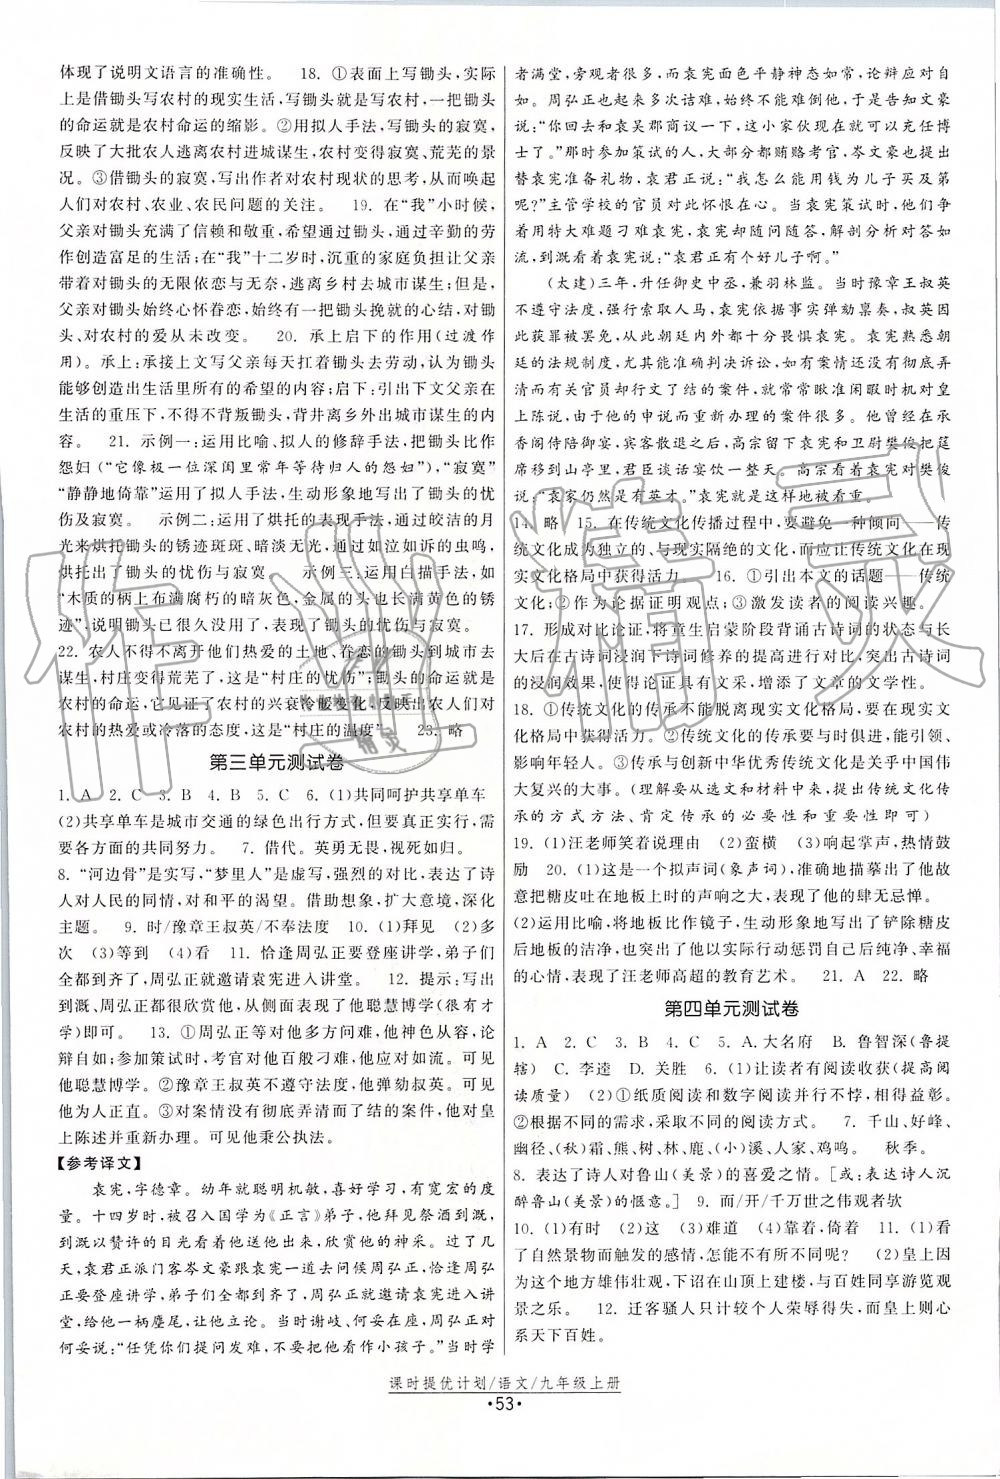 体现了说明文语言的准确性。 18. ①表面上写锄头,实际
上是借锄头写农村的现实生活,写锄头就是写农村,一把锄头
的命运就是农村命运的缩影。②用拟人手法,写锄头的寂寞,
反映了大批农人逃离农村进城谋生,农村变得寂寞、荒芜的景
况。③借锄头的寂寞,写出作者对农村现状的思考,从而唤起
人们对农村、农业、农民问题的关注。 19. 在“我”小时候,
父亲对锄头充满了倚赖和敬重,希望通过锄头,通过辛勤的劳
作创造富足的生活;在“我”十二岁时,沉重的家庭负担让父亲
带着对锄头的无限依恋与无奈,逃离乡村进城市谋生;但是,
父亲对锄头始终心怀眷恋,始终不忘给锄头挽救的机会,对锄
头、对农村的爱从未改变。 20. 承上启下的作用(过渡作
用)。承上:承接上文写父亲每天扛着锄头去劳动,认为锄头
能够创造出生活里所有的希望的内容;启下:引出下文父亲在
生活的重压下,不得不背叛锄头,背井离乡外出城市谋生的内
容。 21. 示例一:运用比喻、拟人的修辞手法,把锄头比作
怨妇(“它像极一位深闺里常年等待良人的怨妇”),“寂寞”
“静静地倚靠”运用了拟人手法,生动形象地写出了锄头的忧
伤及寂寞。 示例二:运用了烘托的表现手法,通过皎洁的月
光来烘托锄头的锈迹斑斑、暗淡无光,通过如泣如诉的虫鸣,
烘托出了锄头的忧伤与寂寞 示例三:运用白描手法,如
“木质的柄上布满腐朽的暗灰色,金属的头也长满黄色的锈
迹”,说明锄头已很久没用了,表现了锄头的忧伤与寂寞。
22. 农人不得不离开他们热爱的土地、眷恋的锄头到城市去
谋生,村庄变得荒芜了,这是“村庄的忧伤”;锄头的命运就是
农村的命运,它见证了农村的兴衰冷暖变化,反映出农人们对
农村的热爱或冷落的态度,这是“村庄的温度”。 23. 略
第三单元测试卷
1. A 2. C 3. B 4. B 5. C 6. (1)共同呵护共享单车
(2)共享单车是城市交通的绿色出行方式,但要真正实行,需
要各方面的共同努力。 7. 借代。英勇无畏,视死如归。
8. “河边骨”是实写,“梦里人”是虚写,强烈的对比,表达了诗
人对人民的同情,对和平的渴望。借助想象,扩大意境,深化
主题。 9. 时/豫章王叔英/不奉法度 10. (1)拜见 (2)多
次 (3)等到 (4)看 11. 恰逢周弘正要登座讲学,弟子们
全都到齐了,周弘正就邀请袁宪进入讲堂。 12. 提示:写出
到溉、周弘正都很欣赏他,从侧面表现了他聪慧博学(很有才
学)即可。 13. ①周弘正等对他多加诘难,他神色从容,论
辩自如;参加策试时,考官对他百般刁难,他应对如流。可见
他聪慧博学。②豫章王叔英不遵守法度,他弹劾叔英。可见
他为人正直。③对案情没有彻底弄清而了结的案件,他对皇
上陈述并重新办理。可见他秉公执法。
【参考译文】
袁宪,字德章。幼年就聪明机敏,喜好学习,有宽宏的度
量。十四岁时,被召入国学为《正言》弟子,他拜见祭酒到溉,
到溉以赞许的目光看着他送他出来,欣赏他的神采。过了几
天,袁君正派门客岑文豪跟袁宪一道去问候周弘正,恰逢周弘
正要登座讲学,弟子们全都到齐了,周弘正就邀请袁宪进入讲
堂,给他一柄麈尾,让他立论。当时谢岐、何妥在座,周弘正对
何妥说:“任凭你们提问发难,也不要顾忌他是小孩子。”当时学
者满堂,旁观者很多,而袁宪面色平静神态如常,论辩应对自
如。周弘正也多次诘难,始终不能难倒他,于是告诉文豪
说:“你回去和袁吴郡商议一下,这小家伙现在就可以充任博
士了。”那时参加策试的人,大部分都贿赂考官,岑文豪请求
替袁宪准备礼物,袁君正说:“我怎么能用钱为儿子买及第
呢?”主管学校的官员对此怀恨在心。当袁宪策试时,他们争
着用特大难题刁难袁宪,袁宪却随问随答,解剖分析对答如
流,到溉看着袁宪说:“袁君正有个好儿子啊。”
(太建)三年,升任御史中丞,兼羽林监。当时豫章王叔英
不遵守法度,强行索取人马,袁宪依据事实弹劾禀奏,叔英因
此获罪被罢免,从此朝廷内外都十分畏惧袁宪。袁宪熟悉朝
廷的法规制度,尤其能准确判决诉讼,如有案情还没有彻底弄
清而有关官员却行文了结的案件,常常瞅准闲暇时机对皇
上陈说,由于他的申说而重新办理的案件很多。他曾经在承
香阁侍陪御宴,宾客散退之后,高宗留下袁宪和卫尉樊俊把筵
席移到山亭里,君臣谈话宴饮一整天。高宗看着袁宪对樊俊
说:“袁家仍然是有英才。”袁宪就是这样被看重。
14. 略 15. 在传统文化传播过程中,要避免一种倾向——传
统文化成为独立的、与现实隔绝的文化,而应让传统文化在现
实文化格局中获得活力 16. ①引出本文的话题——传统
文化;②作为论据证明观点;③激发读者的阅读兴趣。
17. 形成对比论证,将童生启蒙阶段背诵古诗词的状态与长
大后在古诗词浸润下诗词修养的提高进行对比,突出古诗词
的浸润效果,使得论证具有文采,增添了文章的文学性。
18. ①传统文化的传承不应脱离现实文化格局,要在现实文
化格局中获得活力。②传统文化的传承要与时俱进,应能引
领、影响年轻人。③传承与创新中华优秀传统文化是关乎中国伟
大复兴的大事。(理解要从选文和材料中来,提炼出传承
的方式方法、肯定传承的必要性和重要性即可)
19. (1)汪老师笑着说理由 (2)蛮横 (3)响起掌声,热情鼓
励 20. (1)这是一个拟声词(象声词),准确地描摹出了他故
意把糖皮吐在地板上时的声响之大,表现了他的肆无忌惮。
(2)运用比喻,将地板比作镜子,生动形象地写出了铲除糖皮
后地板的洁净,也突出了他以实际行动惩罚自己后纯净、幸福
的心情,表现了汪老师高超的教育艺术。 21. A 22. 略
第四单元测试卷
1. A 2. C 3. B 4. C 5. A. 大名府 B. 鲁智深(鲁提
辖) C. 李逵 D. 关胜 6. (1)让读者有阅读收获(提高阅
读质量) (2)①纸质阅读和数字阅读并存,相得益彰。
②根据不同的需求,采取不同的阅读方式。 7. 千山、好峰,
幽径、(秋)霜、熊、树、林、鹿、(小)溪、人家、鸡鸣。 秋季。
8. 表达了诗人对鲁山(美景)的喜爱之情。[或:表达诗人沉
醉鲁山(美景)的惬意。] 9. 而/开/千万世之伟观者欤
10. (1)有时 (2)这 (3)难道 (4)靠着,倚着 11. (1)看
了自然景物而触发的感情,能有不同吗? (2)皇上因
为这个地方雄伟壮观,下诏在山顶上建楼,与百姓同享游览观
景之乐。 12. 迁客骚人只计较个人荣辱得失,而皇上则心
系天下百姓。
课时提优计划/语文/九年级上册
·53·
作业精灵